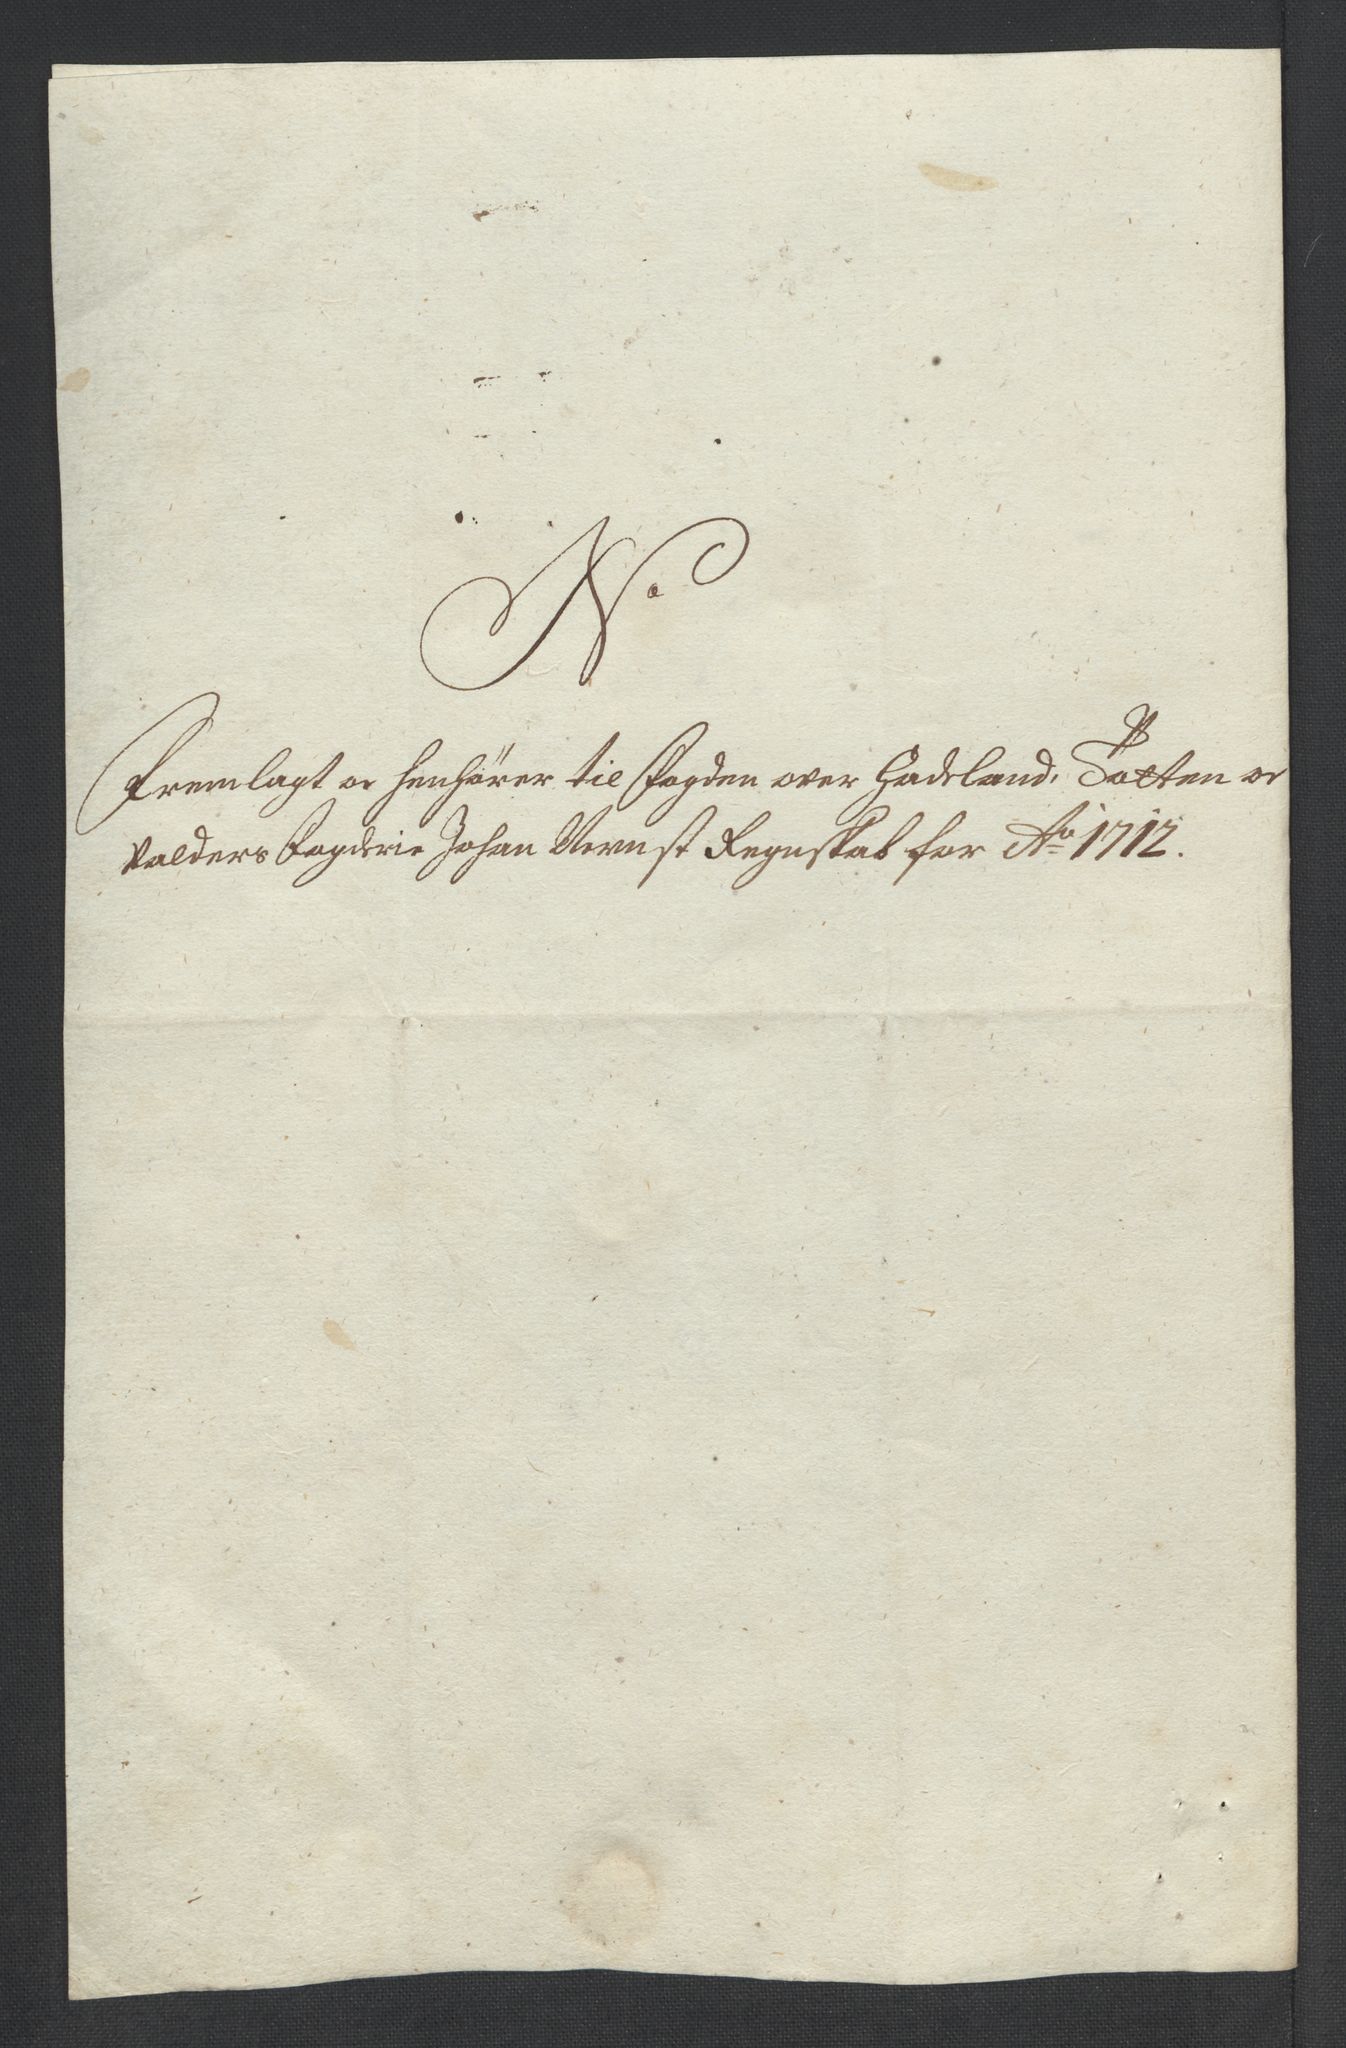 No
Fremlagt oc henhörer til Fogden over Hadeland, Totten oc
Valders Fogderie Johan Vernst Regnskab for Ao 1712.